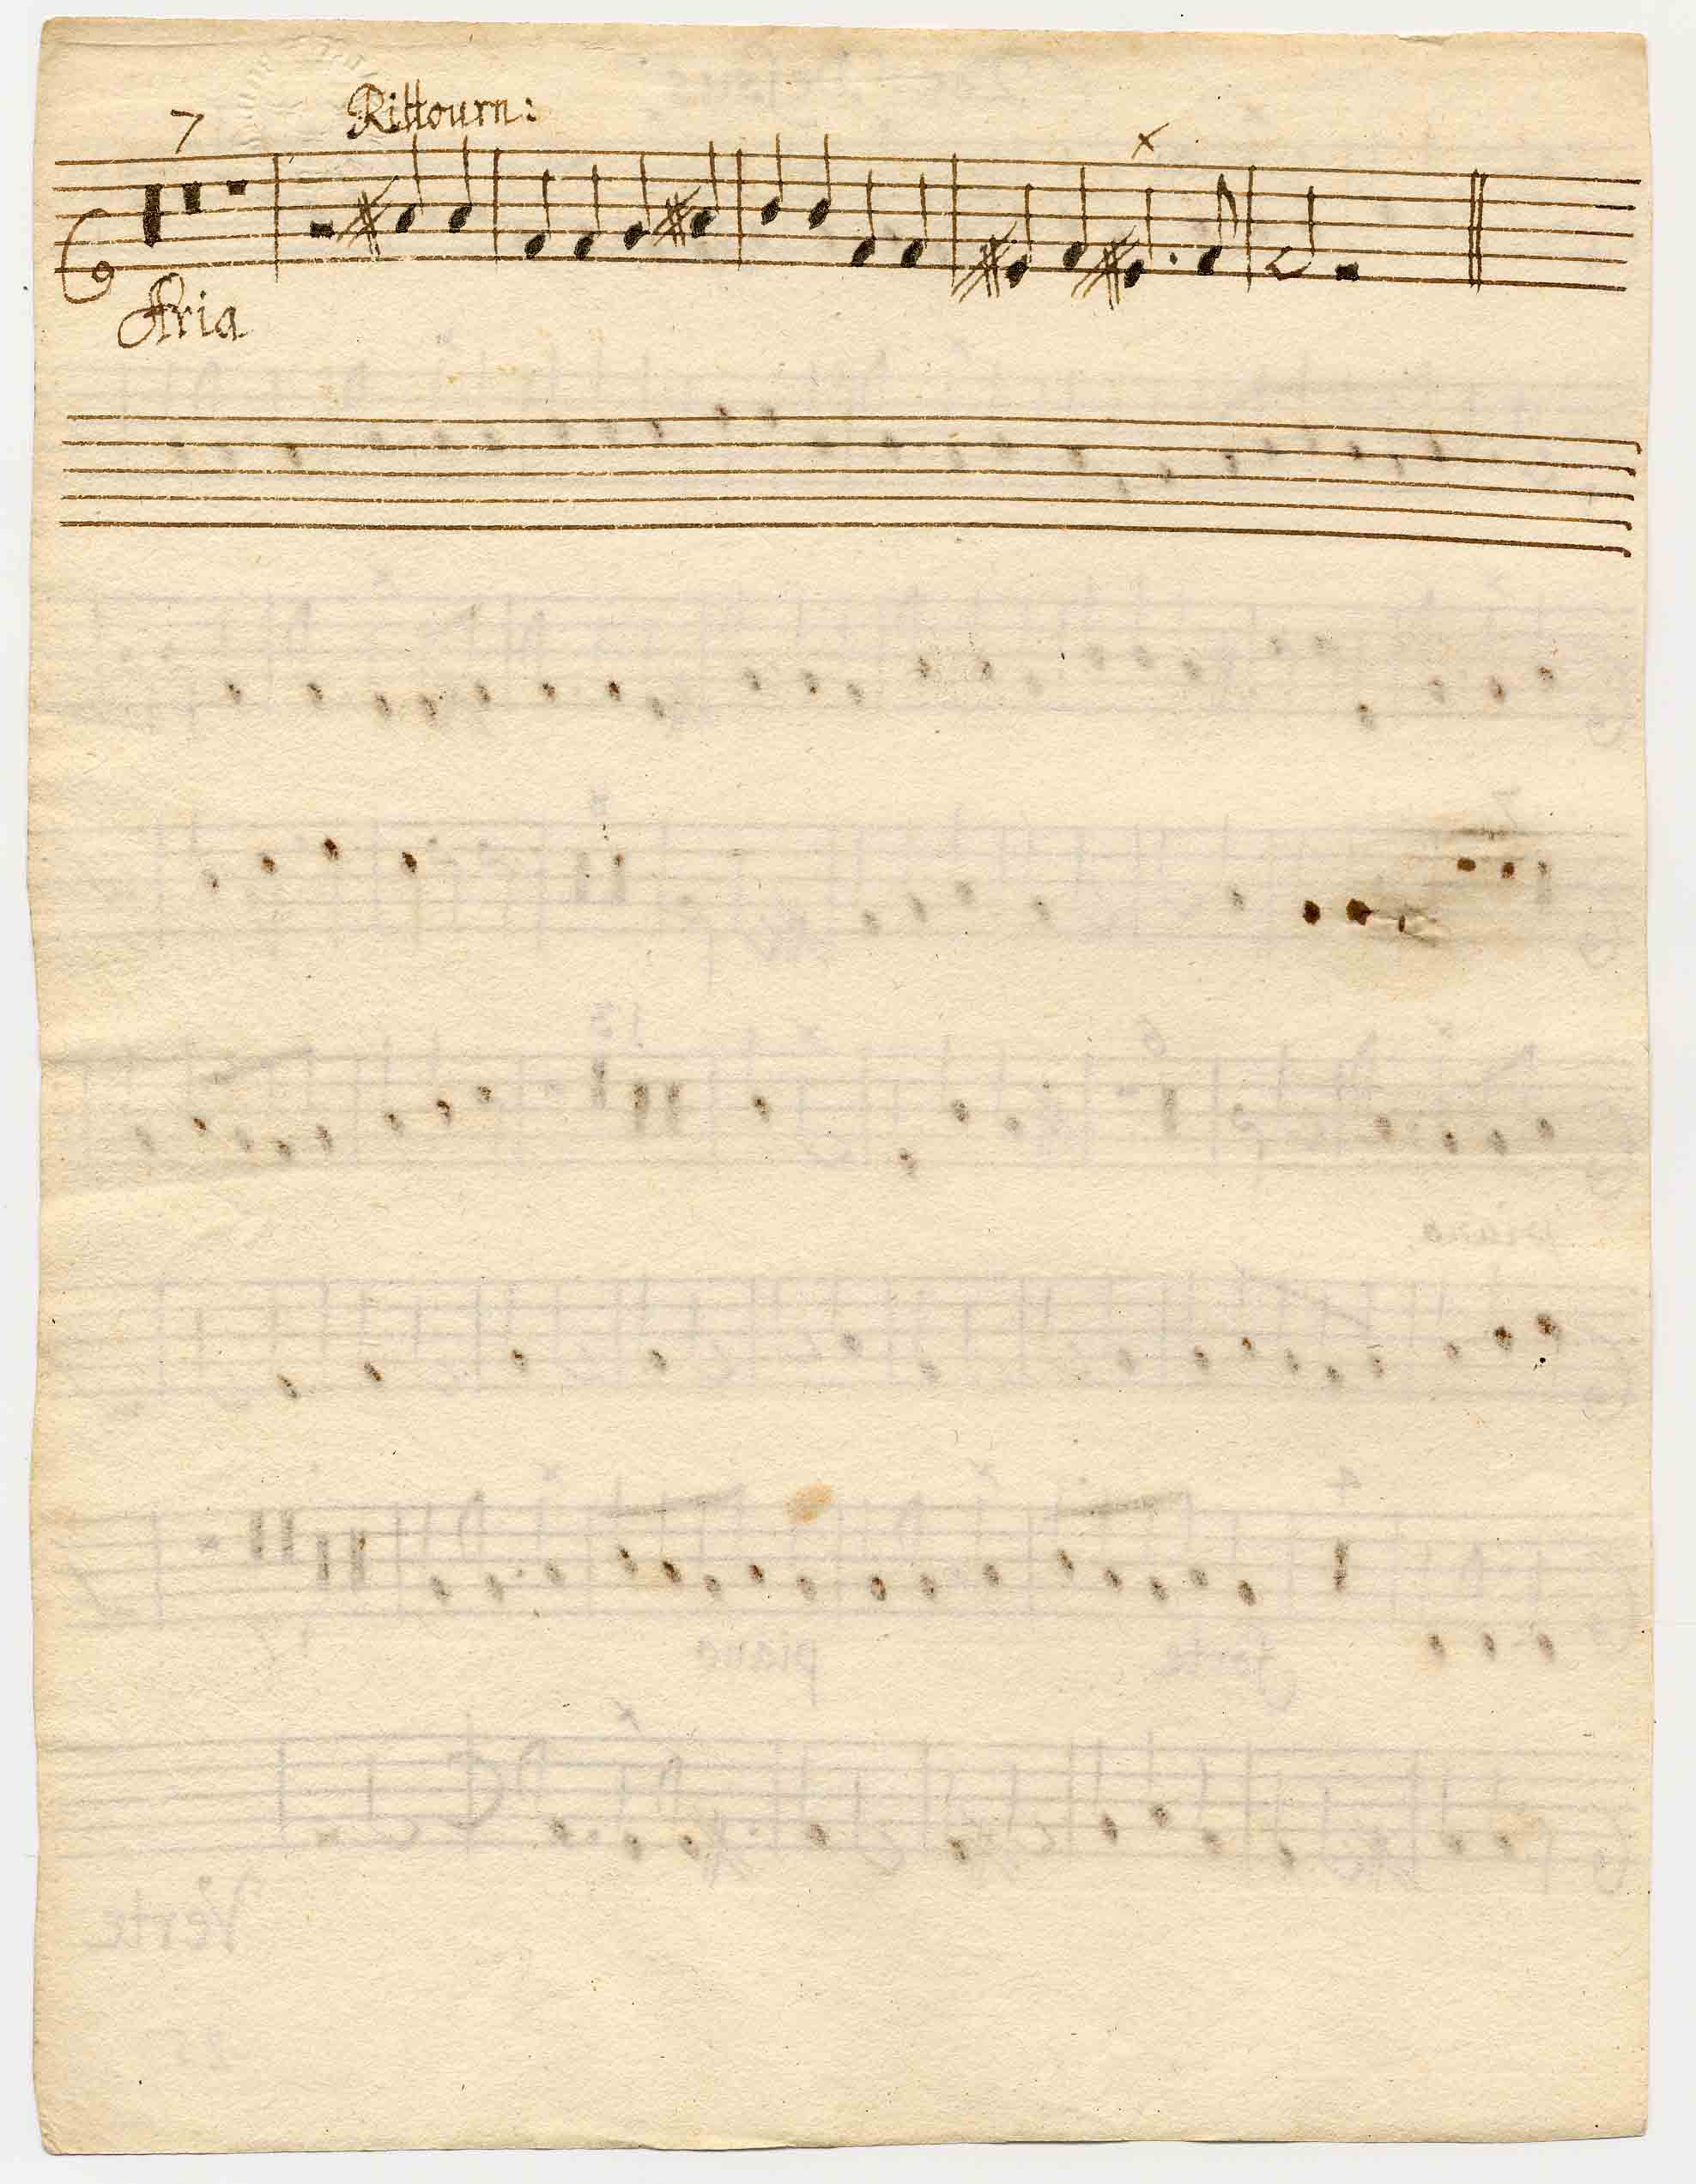 7 Rittourn:
x
Aria